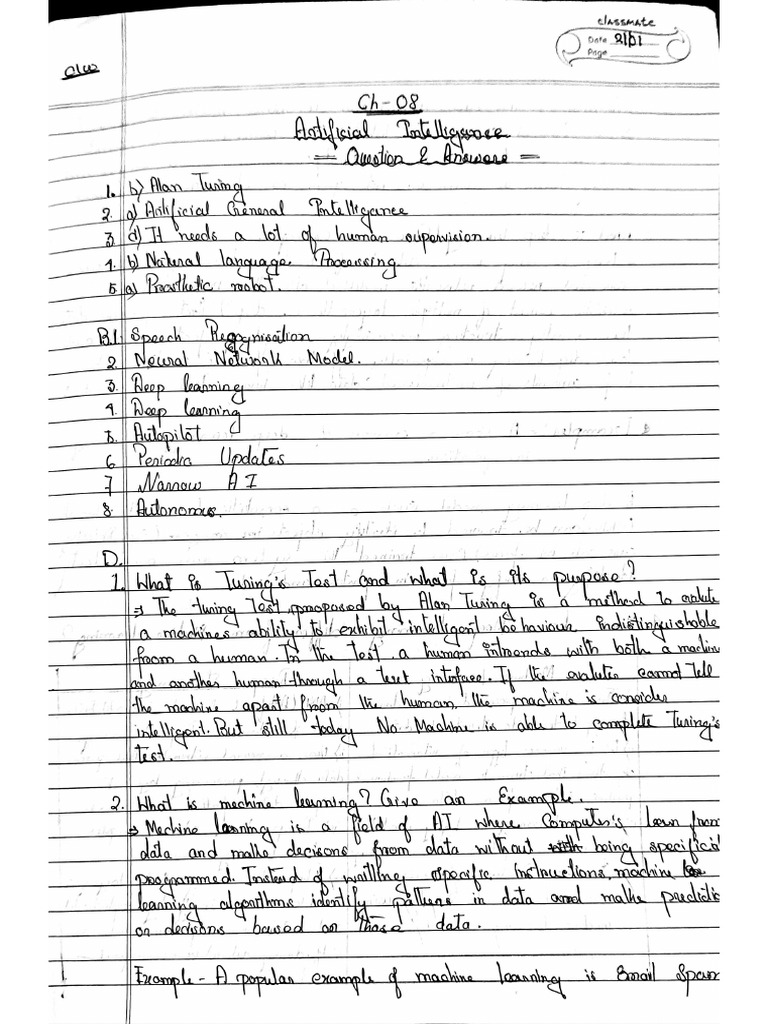 classmate
Date 21/01
Page
C/W
Ch-08
Artificial Intelligence
= Question & Answers =
1. b) Alan Turing
2. a) Artificial General Intelligence
3. d) It needs a lot of human supervision.
4. b) Natural language Processing
5. a) Prosthetic robot.
B.1. Speech Recognisation
2. Neural Network Model.
3. Deep learning
4. Deep learning
5. Autopilot
6 Periodic Updates
7 Narrow AI
8. Autonomus.
D.
1. What is Turing's Test and what is its purpose?
⇒ The turing Test, proposed by Alan Turing is a method to evalute
a machines ability to exhibit intelligent behaviour indistinguishable
from a human. In the test, a human with both a machine
and another human through a text interface. If the evaluter cannot tell
the machine apart from the human, the machine is consider
intelligent. But still today No Machine is able to complete Turing's
test.
2. What is mechine learning? Give an Example.
⇒ Mechine learning is a field of AI where Computer's learn from
data and make decisons from data without being specifical
programmed. Instead of writting specific instructions, machine
learning algorithms identify patterns in data and make predictis
or decisions based on those data.
Example - A popular example of machine learning is Email Spam